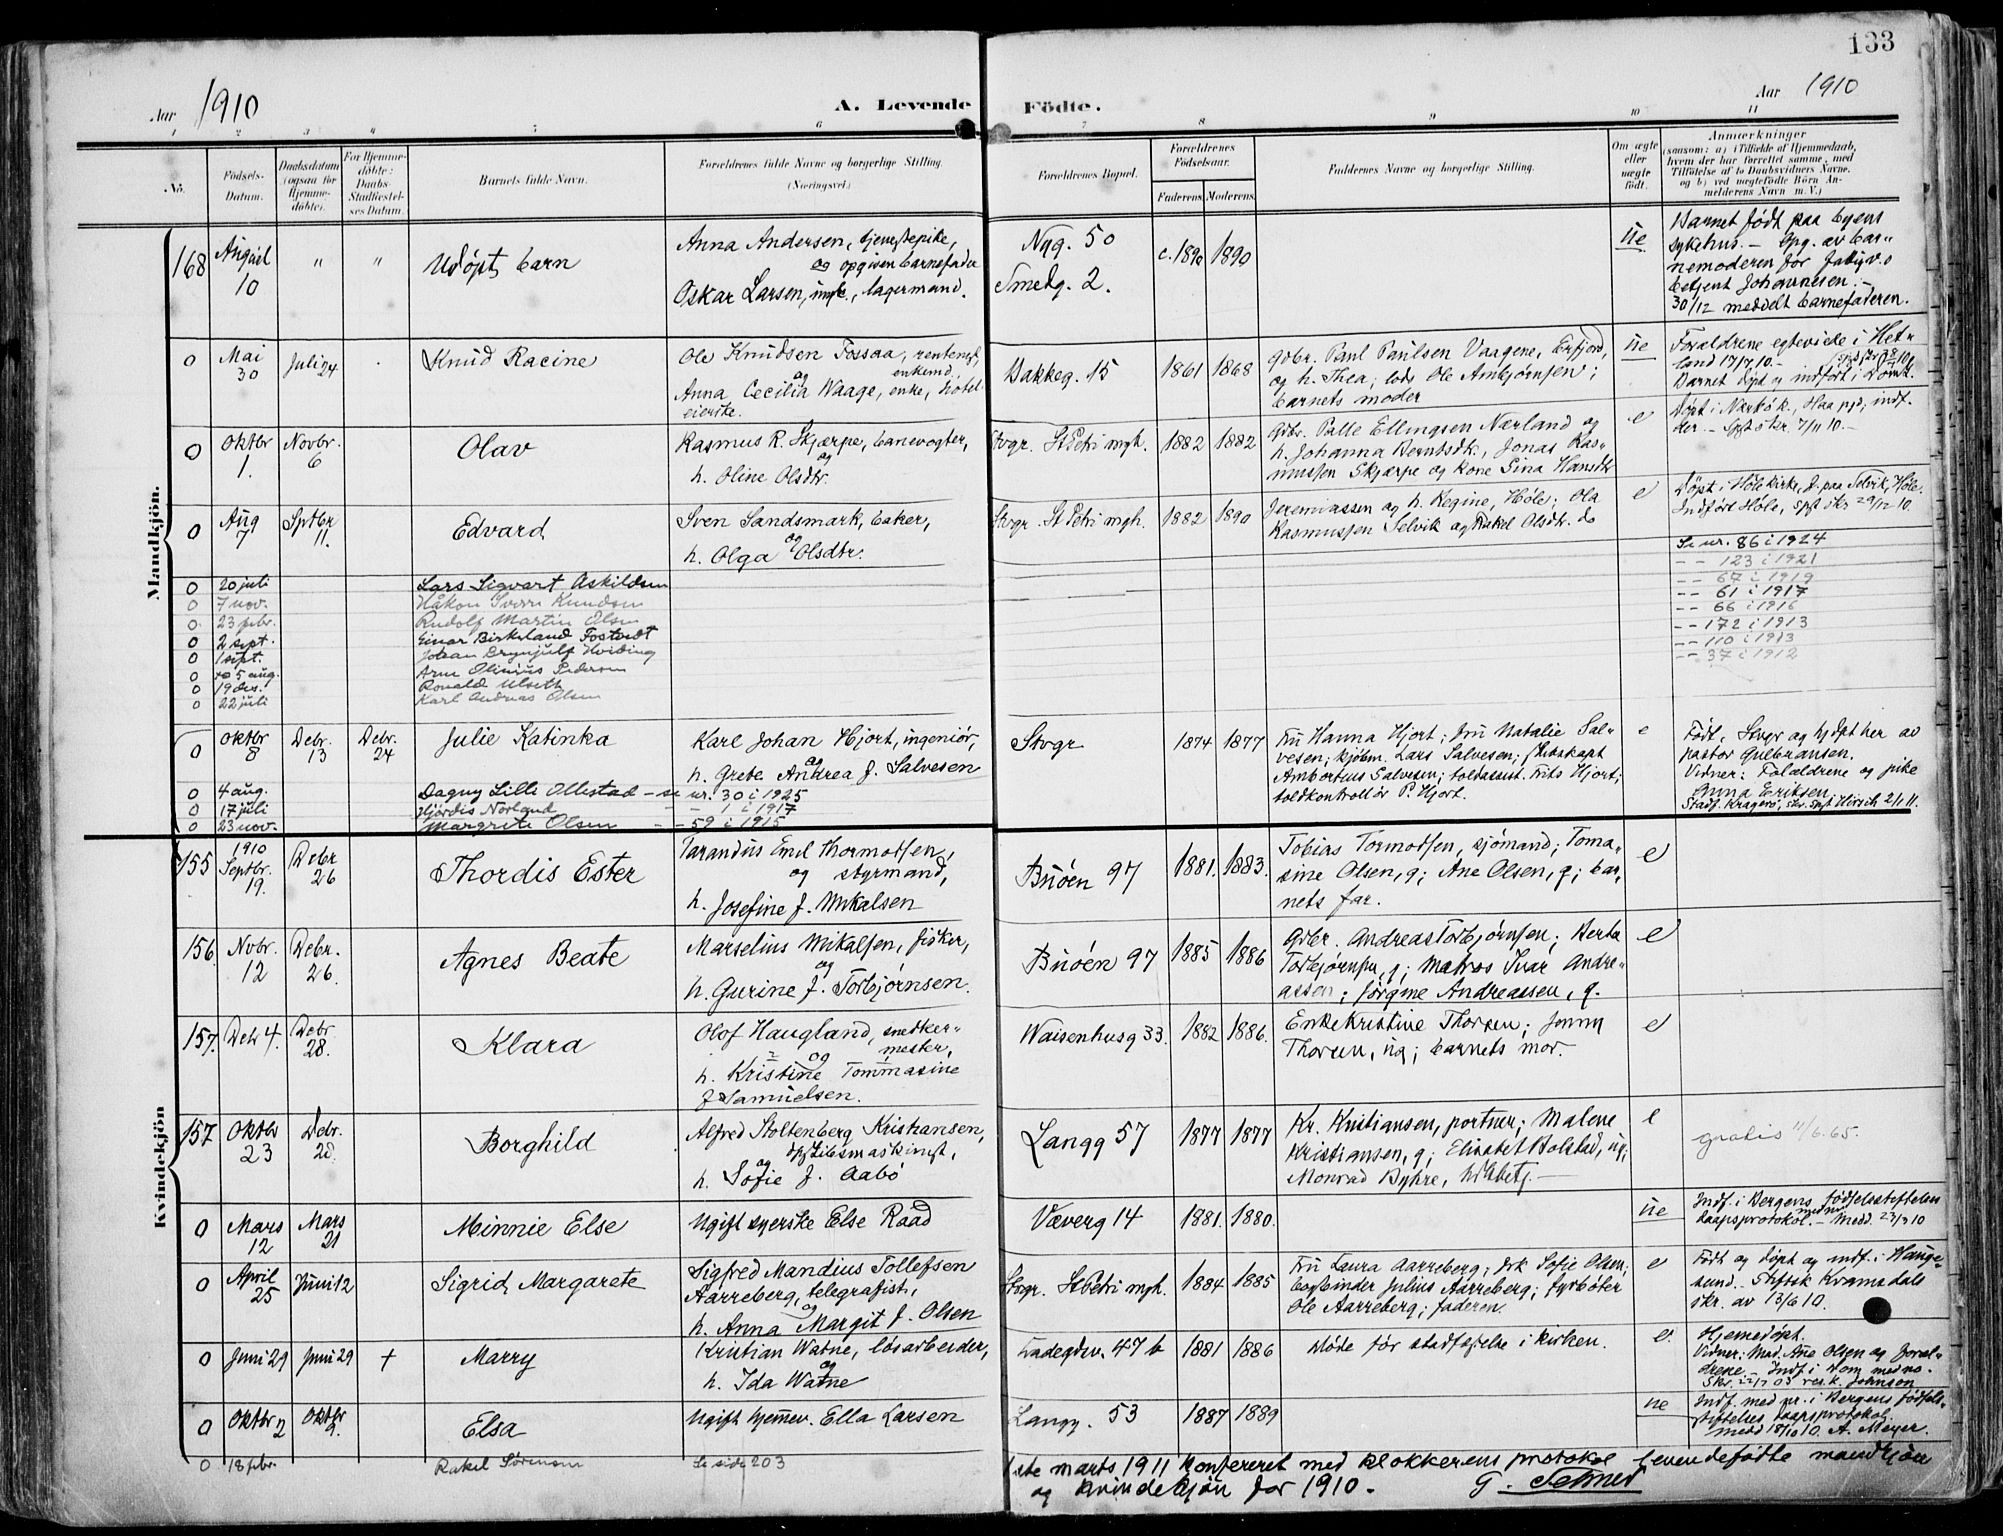 133
Aar 1910
A. Levende Födte.
Aar 1910
1 2 3 4 5 6 7 8 9 10 11
No.
Födsels-
Datum.
Daabsdatum
(ogsaa for
Hjemme-
døbte).
For Hjemme-
døbte:
Daabs-
Stadfæstel-
ses Datum.
Barnets fulde Navn.
Forældrenes fulde Navne og borgerlige Stilling.
(Næringsvei.)
Forældrenes Bopæl.
Forældrenes
Födselsaar.
Faderens
Moderens
Faddernes Navne og borgerlige Stilling.
Om ægte
eller
uægte
født.
Anmærkninger
(saasom: a) i Tilfælde af Hjemmedaab,
hvem der har forrettet samme, med
Tilföielse af to Daabsvidners Navne.
og b) ved uægtefødte Börn An-
melderens Navn m. V.)
Mandkjön.
168 August 10 " " Udøpt barn
Anna Andersen, tjenestepike,
og opgiven barnefader
Oskar Larsen, ungk., lagermand.
Nyg. 50
Smedg. 2.
c. 1890 1890 ue
Barnet født paa byens
sykehus. — Opg. av bar-
nemoderen for fatigv.s
betjent Johannesen. —
30/12 meddelt barnefaderen.
0 Mai 30 Juli 24 Knud Racine
Ole Knudsen Fossaa, rentenist,
og enkemd
Anna Cecilia Waage, enke, hotel-
eierske.
Bakkeg. 15 1861 1868
Gdbr. Paul Paulsen Vaagene, Erfjord,
og h. Thea; lods Ole Ambjørnsen;
barnets moder
ue
Forældrene egteviede i Het-
land 17/7 10. —
Barnet døpt og indført i Domk.
0 Oktbr 1. Novbr. 6 Olav
Rasmus R. Skjærpe, banevogter,
og
h. Oline Olsdtr.
Stvgr. St Petri mgh. 1882 1882
Gdbr. Palle Ellingsen Nærland og
h. Johanna Berntsdtr., Jonas Ras-
mussen Skjærpe og kone Gina Hansdtr
e
Døpt i Nærbø k., Haa pgj, indf.
der. — Spst skr. 7/11 10. —
0 Aug 7 Septbr 11. Edvard
Sven Sandsmark, baker,
og
h. Olga Olsdtr.
Stvgr. St Petri mgh. 1882 1890
Jeremiassen og h. Regine, Høle; Ola
Rasmussen Selvik og Rakel Olsdtr. do
e
Døpt i Høle kirke, f. paa Selvik, Høle.
Indført Høle, Spst skr 29/12 10.
0 20 juli Lars Sigvart Askildsen Se nr. 86 i 1924
0 7 nov. Håkon Sverre Knudsen - - 123 i 1921
0 23 febr. Rudolf Martin Olsen - - 67 i 1919
0 2 sept. Einar Birkeland Fostvedt - - 61 i 1917
0 1 sept. Johan Brynjulf Hviding - - 66 i 1916
0 5 aug. Arne Olinius Pedersen - - 172 i 1913
0 19 des. Ronald Ulseth - - 110 i 1913
0 22 juli Karl Andreas Olsen - - 37 i 1912
0 Oktbr 8 Debr. 13 Debr. 24 Julie Katinka
Karl Johan Hjort, ingeniør,
og
h. Grete Andrea f. Salvesen
Stvgr 1874 1877
Fru Hanna Hjort; Fru Natalie Sal-
vesen; kjøbm. Lars Salvesen; skibskapt
Ambortius Salvesen; toldassist. Frits Hjort;
toldkontrollør P. Hjort.
e
Født, Stvgr og hjdpt her av
pastor Gulbransen.
Vidner: Forældrene og pike
Anna Eriksen.
Stadf. Kragerø, skr. Spst Hirsch 2/1 11.
0 4 aug. Dagny Lilli Ollestad - se nr. 30 i 1925
0 17 juli Hjördis Norland - - 1 i 1917
0 23 nov. Margrete Olsen - - 59 i 1915
Kvindekjön
155 1910 Septbr. 19. Debr 26 Thordis Ester
Tarandus Emil Thormodsen,
og styrmand,
h. Josefine f. Mikalsen
Buøen 97 1881. 1883.
Tobias Tormodsen, sjømand; Toma-
sine Olsen, g; Ane Olsen, g; bar-
nets far.
e
156 Nvbr. 12 Debr. 26. Agnes Beate
Marselius Mikalsen, fisker,
og
h. Gurine f. Torbjørnsen.
Buøen 97 1885 1886
Gdbr. Andreas Torbjørnsen; Berta
Torbjørnsen, g; matros Ivar Andre-
assen; Jørgine Andreassen, g.
e
157. Debr 4. Debr. 28. Klara
Olof Haugland, snedker-
og mester,
h. Kristine Tommasine
f Samuelsen.
Waisenhusg 33. 1882 1886.
Enke Kristine Thorsen; Jenny
Thorsen, ug; barnets mor.
e
157 Oktbr 23 Debr. 28. Borghild
Alfred Stoltenberg Kristiansen,
og skibsmaskinist,
h. Sofie f. Aabø
Langg 57 1877 1877
Kr. Kristiansen, portner; Malene
Kristiansen, g; Elisabet Bolstad, ug;
Monrad Byhre,
e
gratis 11/6.65.
0 Mars 12 Mars 21 Minnie Else
Ugift syerske Else Raad
Væverg 14 1881. 1880. ue
Indf. i Bergens fødselsstiftelses
daapsprotokol. — Medd. 23/3 10
0 April 25 Juni 12 Sigrid Margarete
Sigfred Mandius Tollefsen
Aarreberg, telegrafist,
og
h. Anna Margit f. Olsen
Stvgr. St Petri mgh. 1884 1885
Fru Laura Aarreberg; frk Sofie Olsen;
bogbinder Julius Aarreberg; fyrbøter
Ole Aarreberg; faderen.
e
Født og døpt og indf. i Hauge-
sund. Stiftsk Kramsdals
skr. av 13/6 10.
0 Juni 29 Juni 29 + Marry
Kristian Watne, løsarbeider,
og
h. Ida Watne
Ladegdsv. 47 b 1881 1886
Døde før stadfæstelse i kirken.
e.
Hjemmedøpt.
Vidner: Mad. Ane Olsen og foræl-
drene. — Indf. i Dom med no.
0 Oktbr 2 Oktbr 9. Elsa
Ugift hjemmev. Ella Larsen
Langg. 53 1887 1889 ue
Indf. med nr. i Bergens fødsels-
stiftelses daapsprotokol.
Medd 18/10 10. A. Meyer.
0 18 febr. Rakel Sörensen Se side 203
marts 1911 konfereret med klokkerens protokol levendefødte mandkjøn
og kvindekjøn for 1910. — G. Selmer